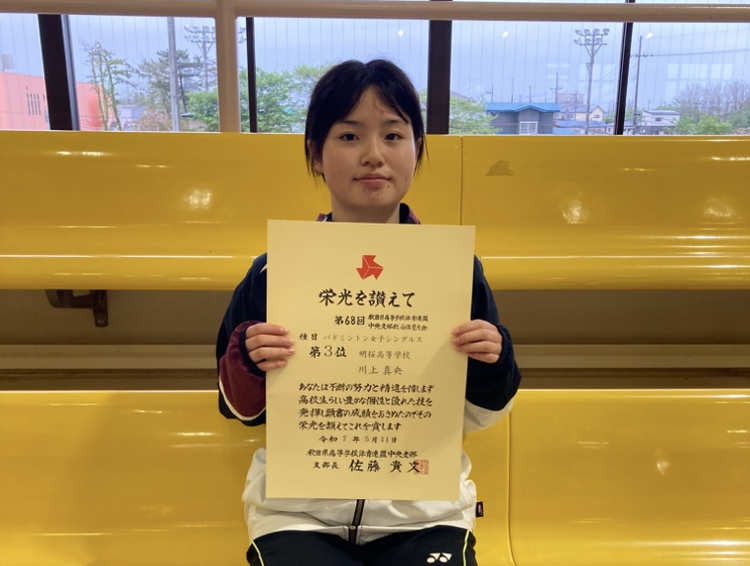 栄光を讃えて
第68回 秋田県高等学校体育連盟
中央支部総合体育大会
種目 バドミントン女子シングルス
第3位 明桜高等学校
川上 真央
あなたは不断の努力と精進を惜しまず
高校生らしい豊かな個性と優れた技を
発揮し頭書の成績をおさめたのでその
栄光を讃えてこれを賞します
令和 7 年 5月11日
秋田県高等学校体育連盟中央支部
支部長 佐藤 貴文
YONEX